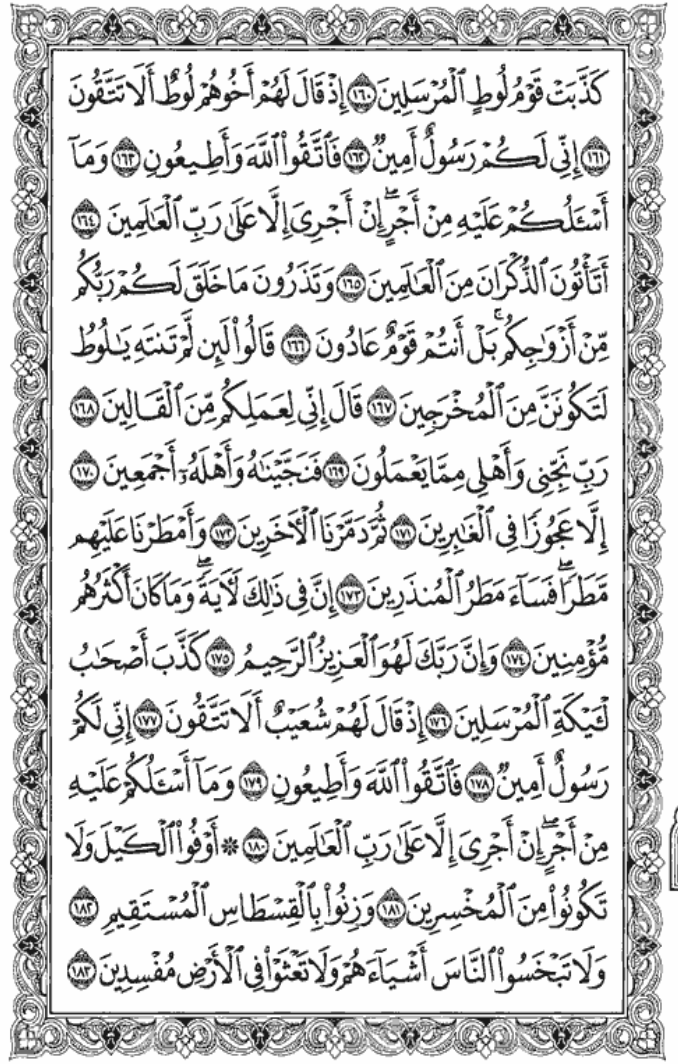 كَذَّبَتْ قَوْمُ لُوطٍ ٱلْمُرْسَلِينَ ١٦٠ إِذْ قَالَ لَهُمْ أَخُوهُمْ لُوطٌ أَلَا تَتَّقُونَ
١٦١ إِنِّى لَكُمْ رَسُولٌ أَمِينٌ ١٦٢ فَٱتَّقُوا۟ ٱللَّهَ وَأَطِيعُونِ ١٦٣ وَمَآ
أَسْـَٔلُكُمْ عَلَيْهِ مِنْ أَجْرٍ ۖ إِنْ أَجْرِىَ إِلَّا عَلَىٰ رَبِّ ٱلْعَـٰلَمِينَ ١٦٤
أَتَأْتُونَ ٱلذُّكْرَانَ مِنَ ٱلْعَـٰلَمِينَ ١٦٥ وَتَذَرُونَ مَا خَلَقَ لَكُمْ رَبُّكُم
مِّنْ أَزْوَٰجِكُم ۚ بَلْ أَنتُمْ قَوْمٌ عَادُونَ ١٦٦ قَالُوا۟ لَئِن لَّمْ تَنتَهِ يَـٰلُوطُ
لَتَكُونَنَّ مِنَ ٱلْمُخْرَجِينَ ١٦٧ قَالَ إِنِّى لِعَمَلِكُم مِّنَ ٱلْقَالِينَ ١٦٨
رَبِّ نَجِّنِى وَأَهْلِى مِمَّا يَعْمَلُونَ ١٦٩ فَنَجَّيْنَـٰهُ وَأَهْلَهُۥٓ أَجْمَعِينَ ١٧٠
إِلَّا عَجُوزًا فِى ٱلْغَـٰبِرِينَ ١٧١ ثُمَّ دَمَّرْنَا ٱلْـَٔاخَرِينَ ١٧٢ وَأَمْطَرْنَا عَلَيْهِم
مَّطَرًا ۖ فَسَآءَ مَطَرُ ٱلْمُنذَرِينَ ١٧٣ إِنَّ فِى ذَٰلِكَ لَـَٔايَةً ۖ وَمَا كَانَ أَكْثَرُهُم
مُّؤْمِنِينَ ١٧٤ وَإِنَّ رَبَّكَ لَهُوَ ٱلْعَزِيزُ ٱلرَّحِيمُ ١٧٥ كَذَّبَ أَصْحَـٰبُ
لْـَٔيْكَةِ ٱلْمُرْسَلِينَ ١٧٦ إِذْ قَالَ لَهُمْ شُعَيْبٌ أَلَا تَتَّقُونَ ١٧٧ إِنِّى لَكُمْ
رَسُولٌ أَمِينٌ ١٧٨ فَٱتَّقُوا۟ ٱللَّهَ وَأَطِيعُونِ ١٧٩ وَمَآ أَسْـَٔلُكُمْ عَلَيْهِ
مِنْ أَجْرٍ ۖ إِنْ أَجْرِىَ إِلَّا عَلَىٰ رَبِّ ٱلْعَـٰلَمِينَ ١٨٠ ۞ أَوْفُوا۟ ٱلْكَيْلَ وَلَا
تَكُونُوا۟ مِنَ ٱلْمُخْسِرِينَ ١٨١ وَزِنُوا۟ بِٱلْقِسْطَاسِ ٱلْمُسْتَقِيمِ ١٨٢
وَلَا تَبْخَسُوا۟ ٱلنَّاسَ أَشْيَآءَهُمْ وَلَا تَعْثَوْا۟ فِى ٱلْأَرْضِ مُفْسِدِينَ ١٨٣